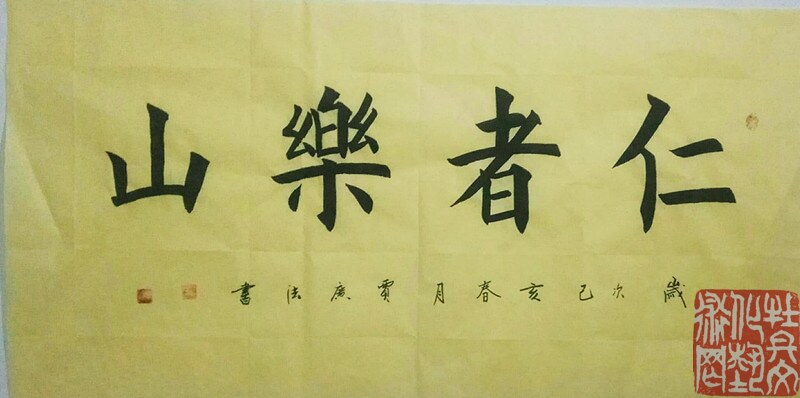 仁者樂山
歲次己亥春月賈廣法書